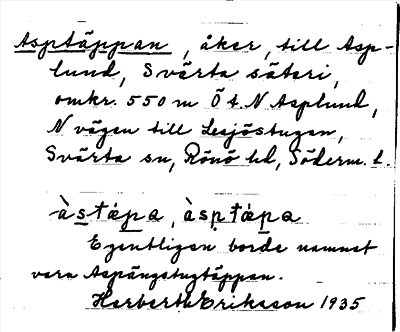 Asptäppan, åker, till Asp-
lund, Svärta säteri,
omkr. 550 m Ö t. N Asplund,
N vägen till Lesjöstugan,
Svärta sn, Rönö hd, Söderm. l.
àstǽpa, àsptǽpa
Egentligen borde namnet
vara Aspängstugtäppan.
Herberth Eriksson 1935